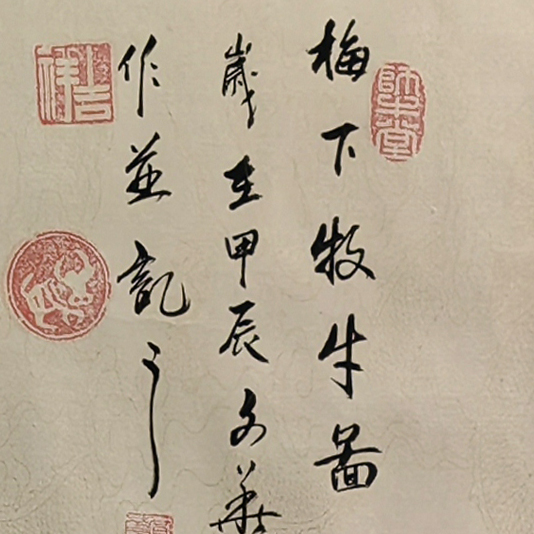 梅下牧牛图
歲在甲辰文華
作並記之